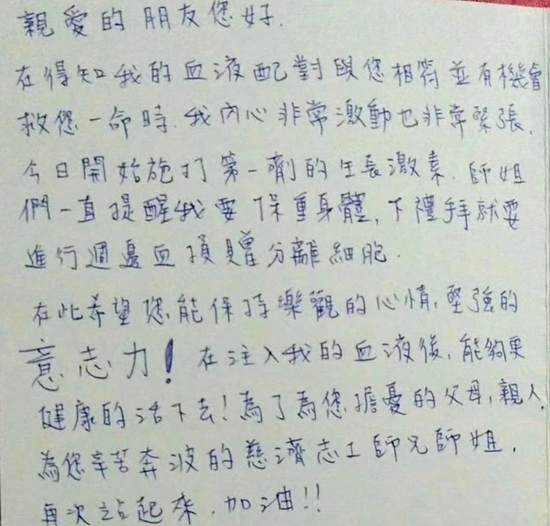 親愛的朋友您好.
在得知我的血液配對與您相符並有機會
救您一命時.我內心非常激動也非常緊張.
今日開始施打第一劑的生長激素.師姐
們一直提醒我要保重身體,下禮拜就要
進行週邊血捐贈分離細胞.
在此希望您能保持樂觀的心情,堅強的
意志力!在注入我的血液後,能夠更
健康的活下去!為了為您擔憂的父母,親人,
為您辛苦奔波的慈濟志工師兄師姐,
再次站起來,加油!!